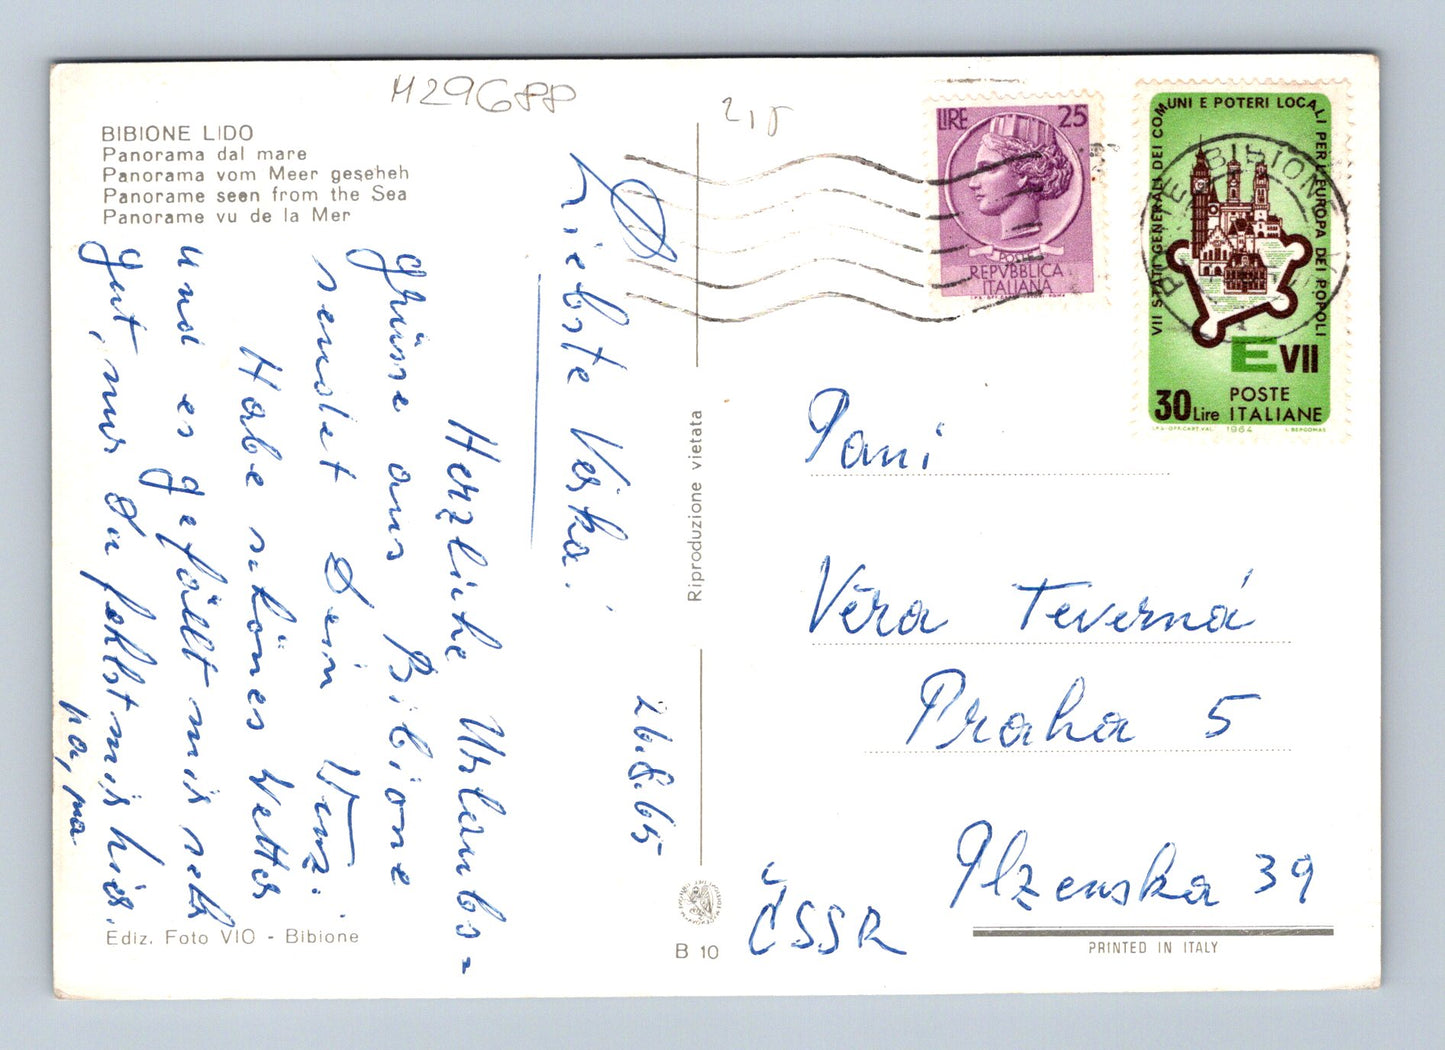 M29688
215
BIBIONE LIDO
Panorama dal mare
Panorama vom Meer geseheh
Panorame seen from the Sea
Panorame vu de la Mer
Liebste Verka!
Herzliche Urlaubs-
grüsse aus Bibione
sendet Dein
Habe schönes Wetter
und es gefällt mir sehr
gut, nur Du fehlst mir hier.
pa, pa
26.8.65
Ediz. Foto VIO - Bibione
Riproduzione vietata
B 10
LIRE 25
POSTE
REPVBBLICA
ITALIANA
VII STATI GENERALI DEI COMUNI E POTERI LOCALI PER L'EUROPA DEI POPOLI
E VII
30 Lire POSTE ITALIANE
1964
BIBIONE
Pani
Věra Teverná
Praha 5
Plzenska 39
ČSSR
PRINTED IN ITALY